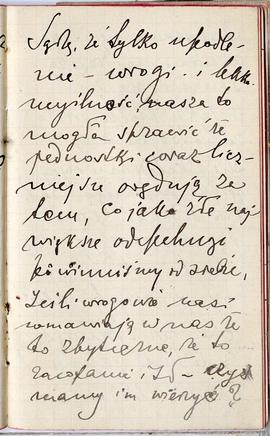 Sądzę, że tylko upodle-
nie – wrogi i lekko-
myślność nasza to
mogła sprawić że
jednostki coraz licz-
niejsze orędują za
tem, co jako złe naj
większe odepchnąć
powinniśmy od siebie,
Jeśli wrogowie nasi
wmawiają w nas że
to zbyteczne, że to
zacofanie i
mamy im wierzyć?